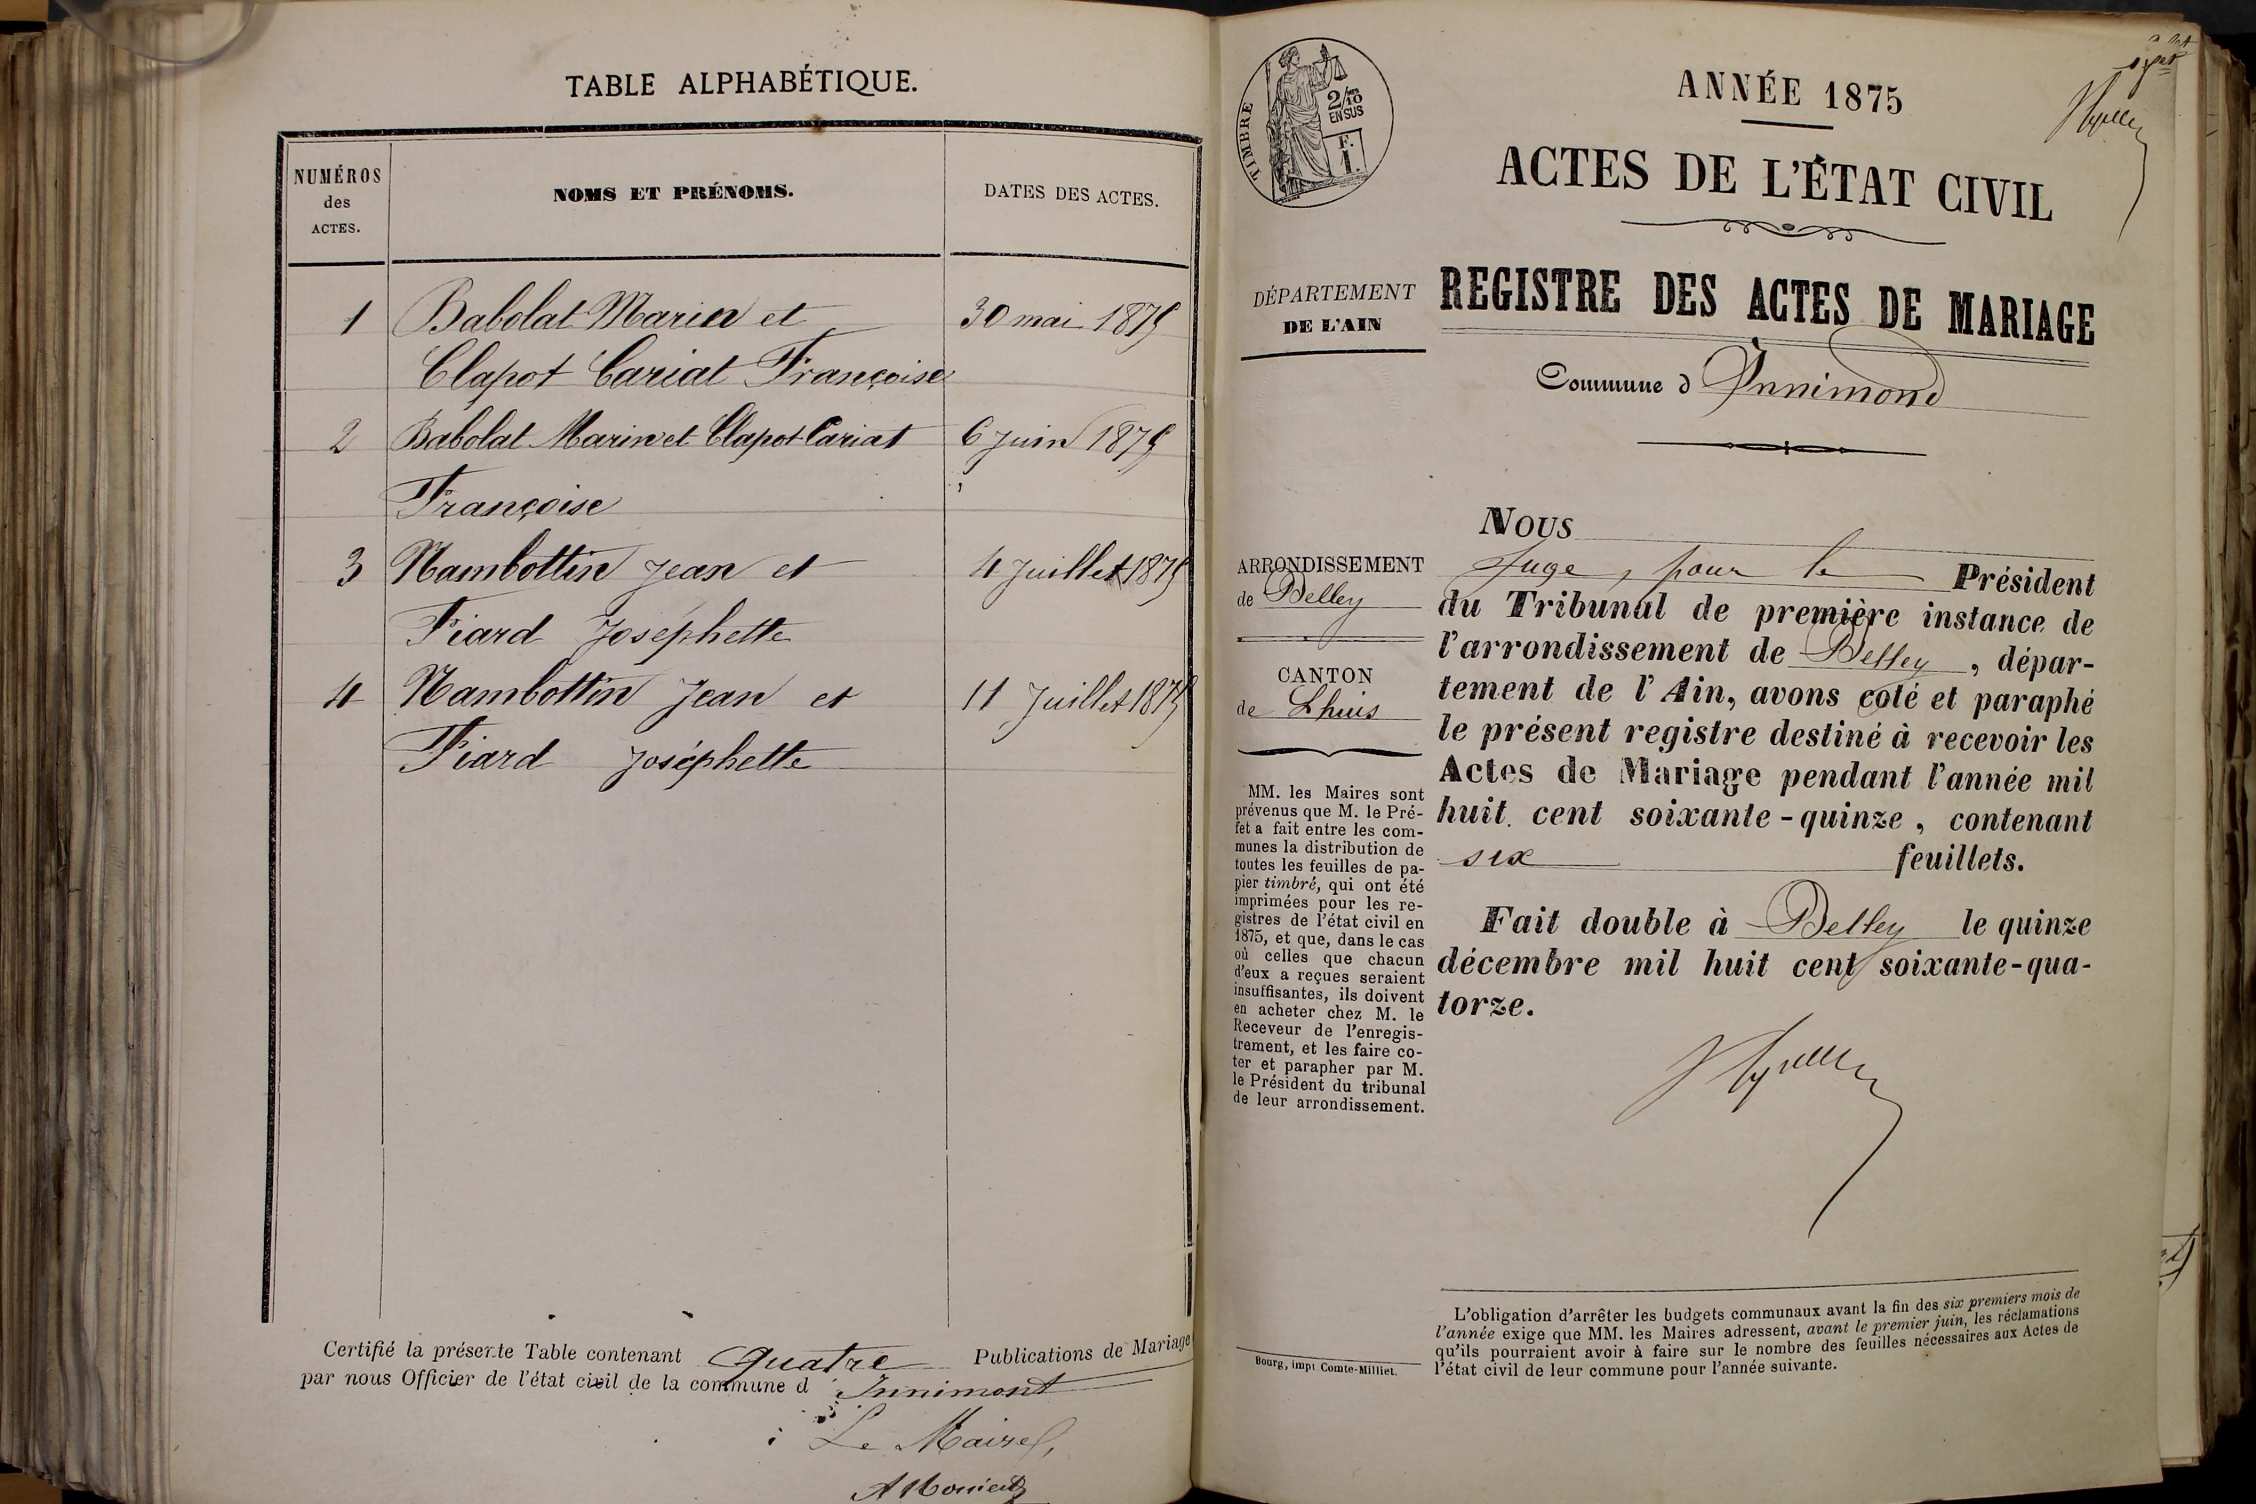 TABLE ALPHABÉTIQUE.
NUMÉROS des ACTES.
NOMS ET PRÉNOMS.
DATES DES ACTES.
1 Babolat Marin et 30 mai 1875
Clapot Cariat Françoise
2 Babolat Marin et Clapot Cariat 6 Juin 1875
Françoise
3 Nambottin Jean et 4 Juillet 1875
Fiard Joséphette
4 Nambottin Jean et 11 Juillet 1875
Fiard Joséphette
Certifié la présente Table contenant quatre Publications de Mariage
par nous Officier de l'état civil de la commune d'Innimont
Le Maire,
TIMBRE
2/10
EN SUS
F.
1.
ANNÉE 1875
ACTES DE L'ÉTAT CIVIL
DÉPARTEMENT
DE L'AIN
REGISTRE DES ACTES DE MARIAGE
Commune d Innimond
ARRONDISSEMENT
de Belley
CANTON
de Lhuis
MM. les Maires sont
prévenus que M. le Pré-
fet a fait entre les com-
munes la distribution de
toutes les feuilles de pa-
pier timbré, qui ont été
imprimées pour les re-
gistres de l'état civil en
1875, et que, dans le cas
où celles que chacun
d'eux a reçues seraient
insuffisantes, ils doivent
en acheter chez M. le
Receveur de l'enregis-
trement, et les faire co-
ter et parapher par M.
le Président du tribunal
de leur arrondissement.
Nous
Juge, pour le Président
du Tribunal de première instance de
l'arrondissement de Belley, dépar-
tement de l'Ain, avons coté et paraphé
le présent registre destiné à recevoir les
Actes de Mariage pendant l'année mil
huit cent soixante-quinze, contenant
six feuillets.
Fait double à Belley le quinze
décembre mil huit cent soixante-qua-
torze.
Bourg, impr Comte-Milliet.
L'obligation d'arrêter les budgets communaux avant la fin des six premiers mois de
l'année exige que MM. les Maires adressent, avant le premier juin, les réclamations
qu'ils pourraient avoir à faire sur le nombre des feuilles nécessaires aux Actes de
l'état civil de leur commune pour l'année suivante.